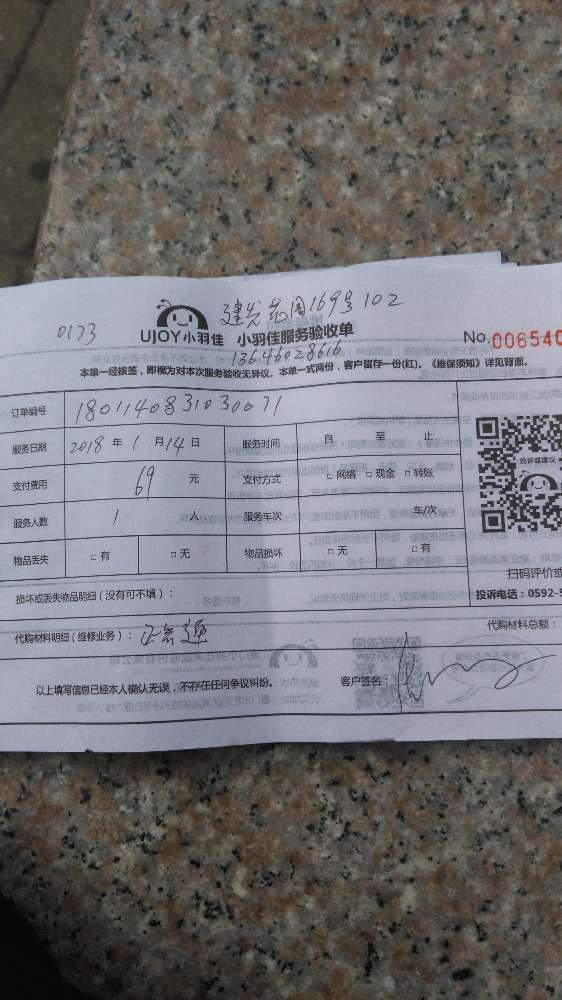 建发花园169号102
0173
UJOY小羽佳 小羽佳服务验收单 No.006540
13646028616
本单一经核签，即视为对本次服务验收无异议。本单一式两份，客户留存一份(红)。《维保须知》详见背面。
订单编号 1801140831030071
服务日期 2018年1月14日 服务时间 自 至 止
支付费用 69 元 支付方式 □网络 □现金 □转账
服务人数 1 人 服务车次 车/次
投诉或建议
物品丢失 □有 □无 物品损坏 □无 □有
扫码评价或
损坏或丢失物品明细（没有可不填）： 投诉电话：0592-5
代购材料明细（维修业务）： 正常通 代购材料总额：
以上填写信息已经本人确认无误，不存在任何争议纠纷。 客户签名：